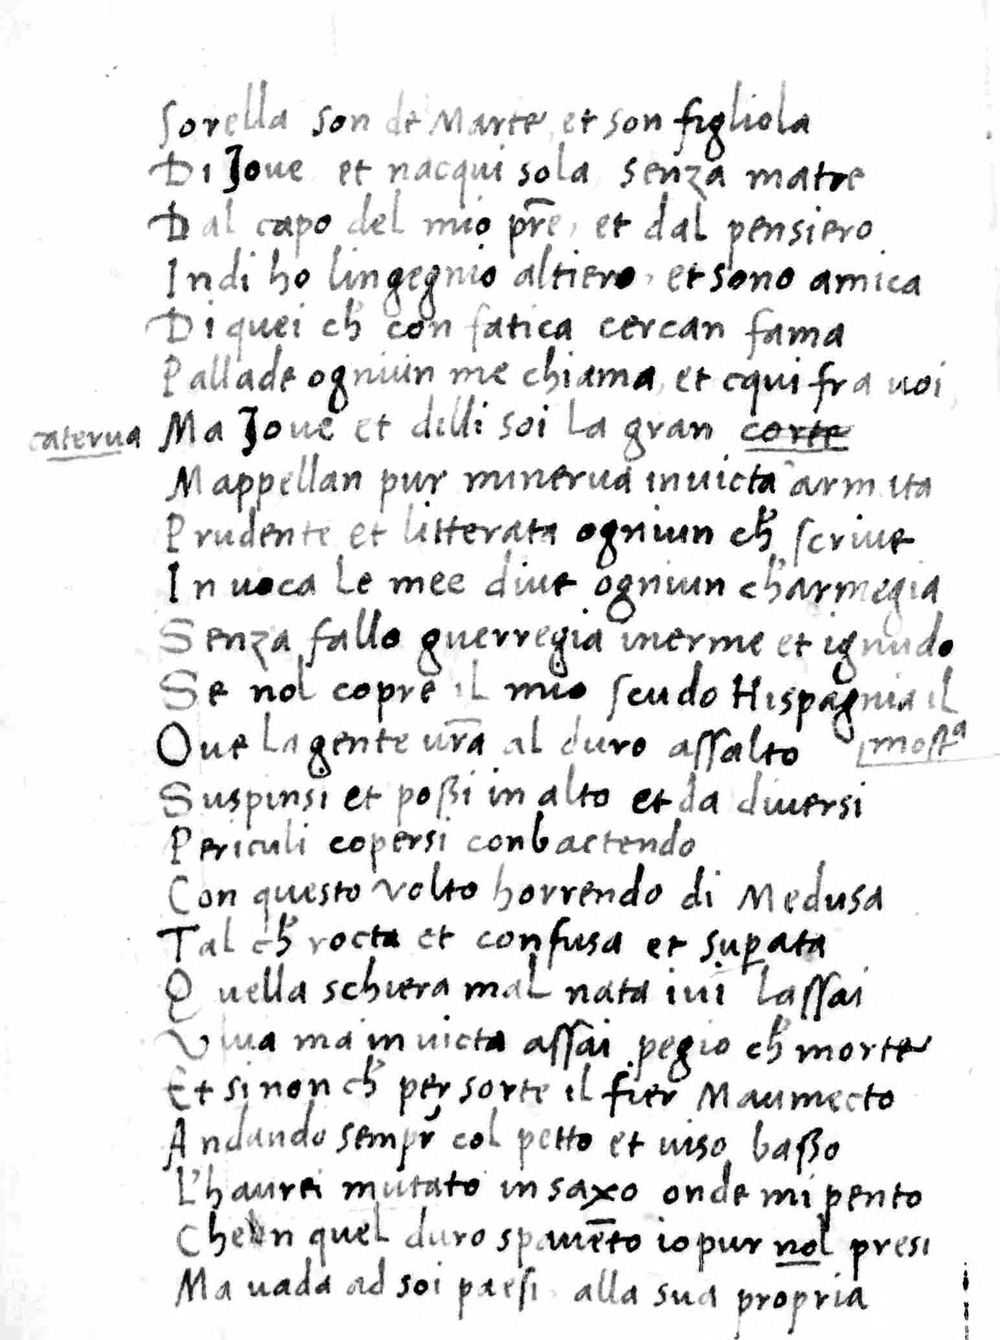 Sorella son de Marte, et son figliola
Di Joue et nacqui sola senza matre
Dal capo del mio pr̃e, et dal pensiero
Indi ho lingegnio altiero, et sono amica
Di quei ch' con fatica cercan fama
Pallade ogniun me chiama, et cqui fra uoi,
caterua Ma Joue et delli soi La gran corte
Mappellan pur minerua inuicta armata
Prudente et litterata ogniun ch' scriue
In uoca le mee diue ogniun ch'armegia
Senza fallo guerregia inerme et ignudo
Se nol copre il mio scudo Hispagnia il
Oue la gente ur̃a al duro assalto mostᵃ
Suspinsi et poßi in alto et da diuersi
Periculi copersi conbactendo
Con questo volto horrendo di Medusa
Tal ch' rocta et confusa et sup̱ata
Quella schiera mal nata iui lassai
Viua ma inuicta assai pegio ch' morte
Et si non ch' per sorte il fier Maumecto
Andando sempr' col petto et uiso baßo
L'haurei mutato in saxo onde mi pento
Che in quel duro spauẽto io pur nol presi
Ma uada ad soi paesi, alla sua propria